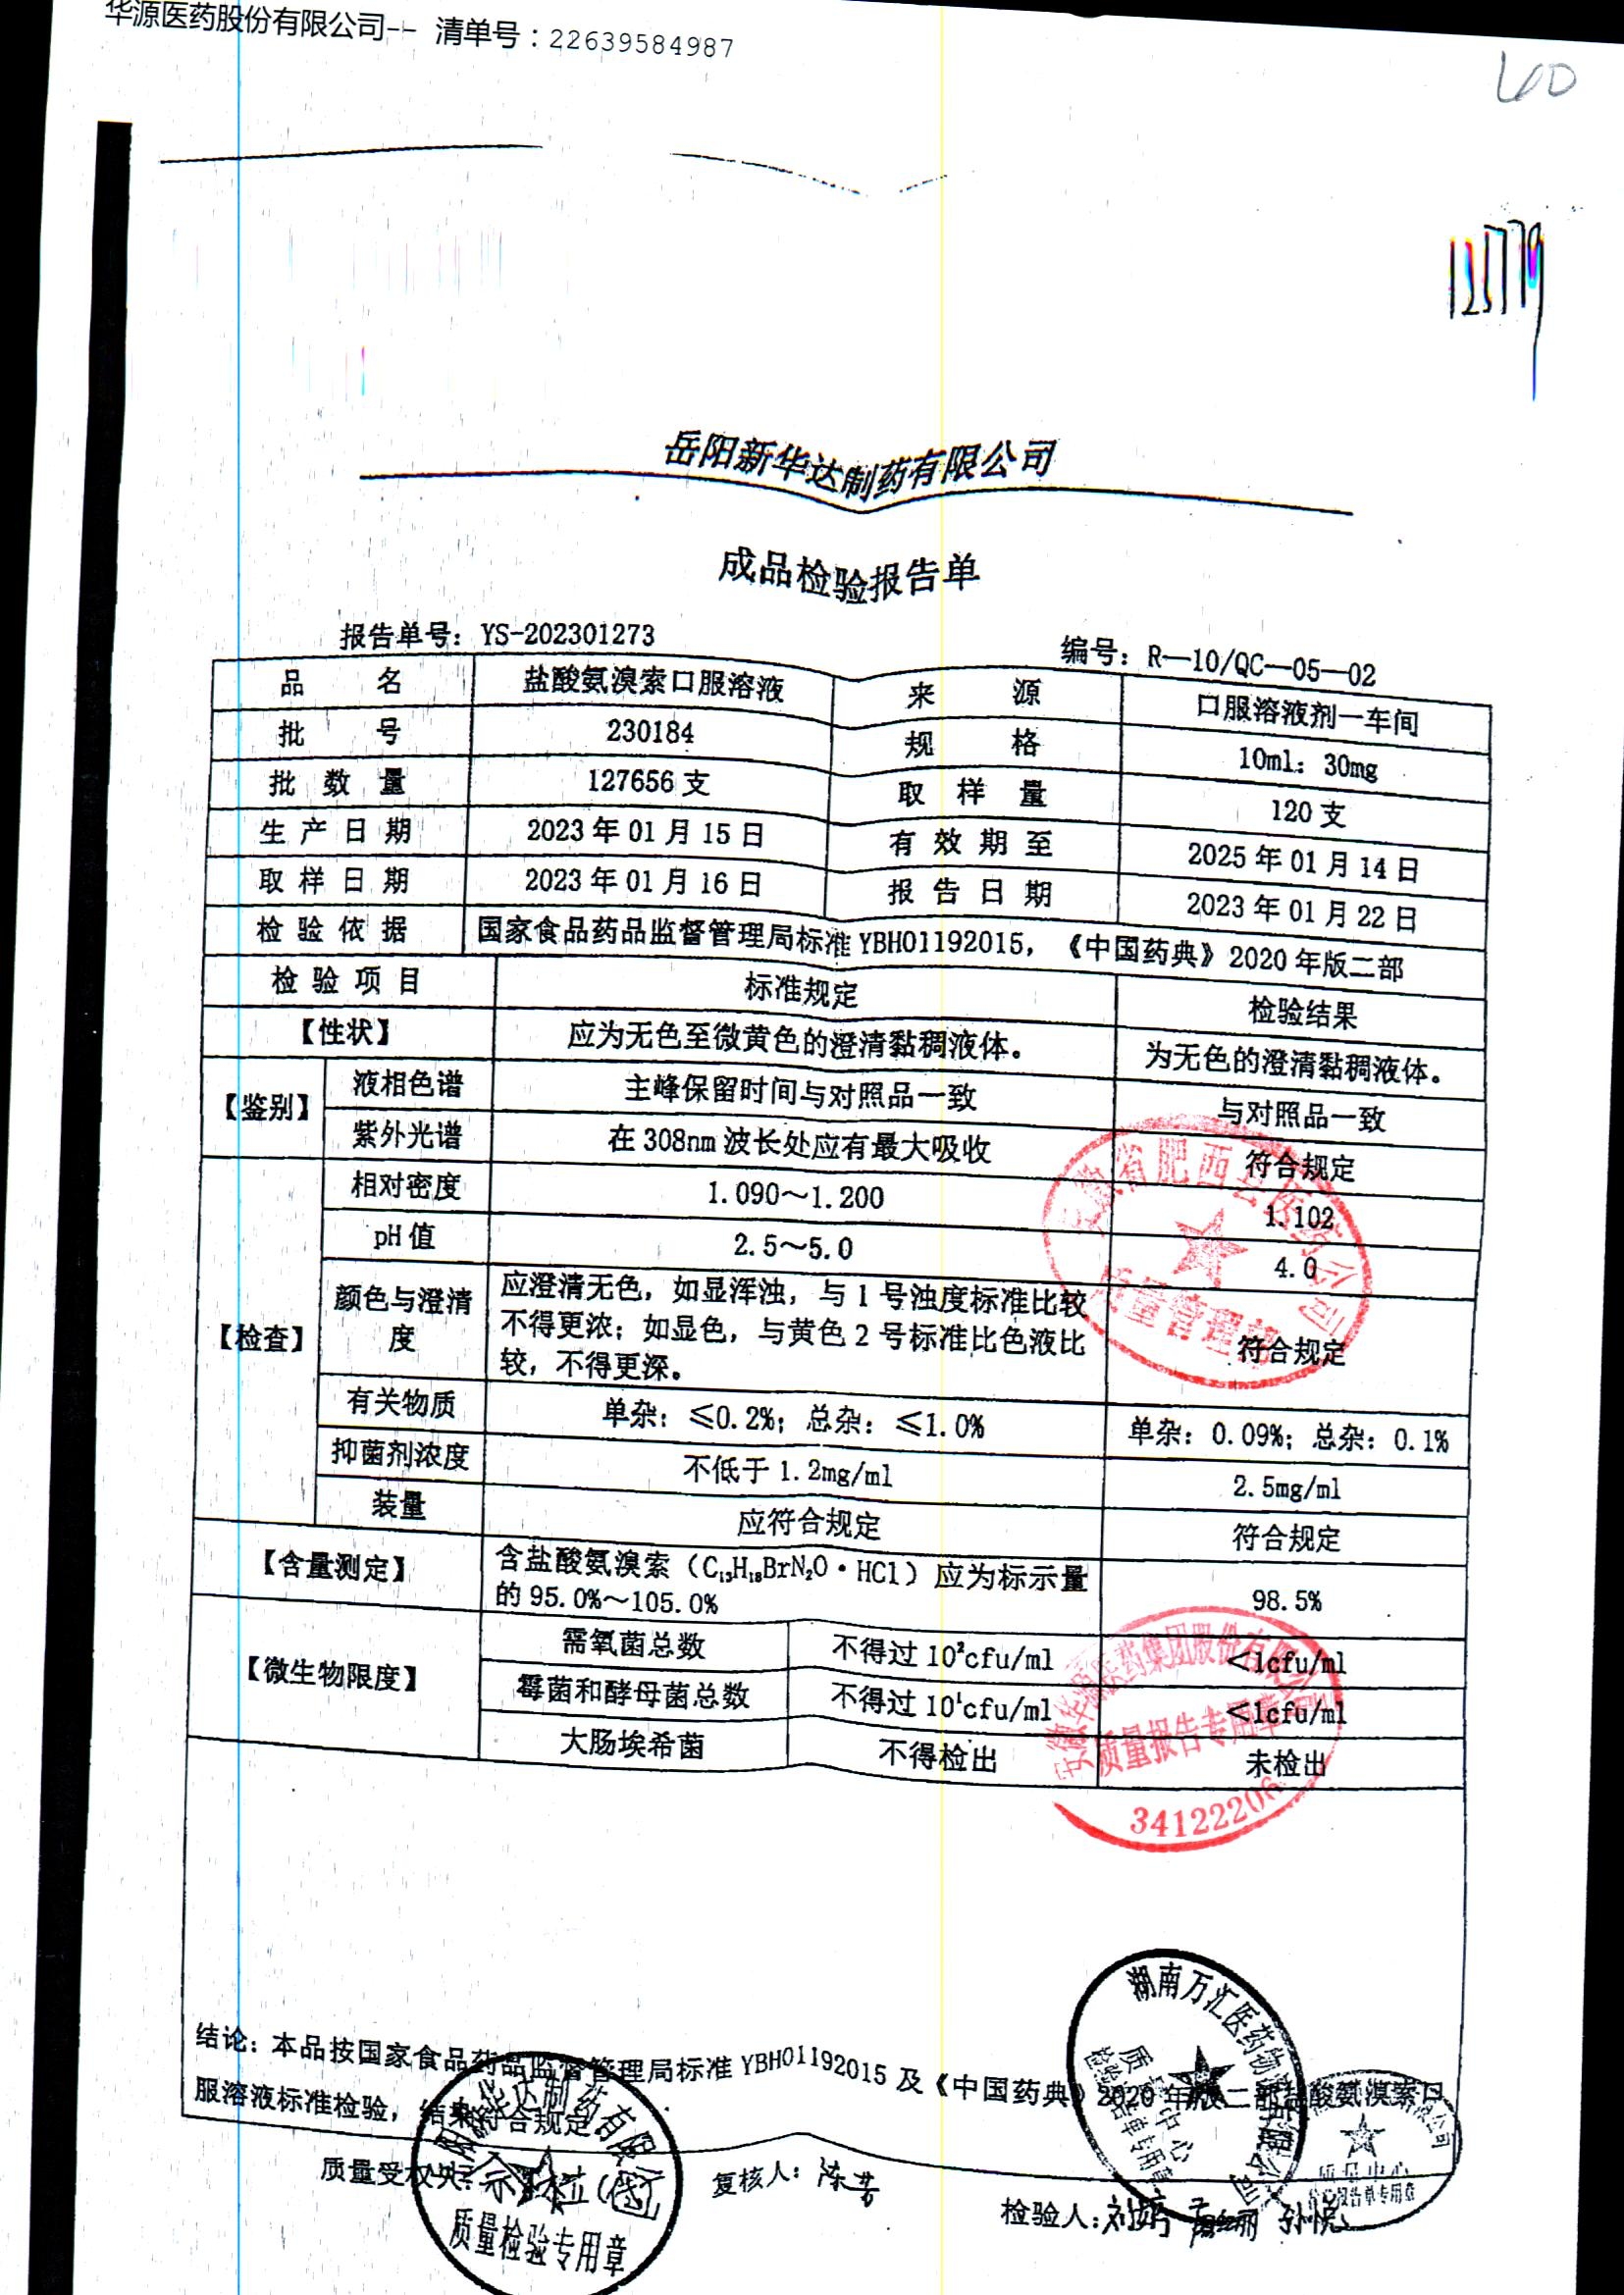 华源医药股份有限公司-- 清单号：22639584987
60
岳阳新华达制药有限公司
成品检验报告单
报告单号：YS-202301273 编号：R—10/QC—05—02
品 名 盐酸氨溴索口服溶液 来 源 口服溶液剂一车间
批 号 230184 规 格 10ml：30mg
批 数 量 127656 支 取 样 量 120 支
生 产 日 期 2023 年 01 月 15 日 有 效 期 至 2025 年 01 月 14 日
取 样 日 期 2023 年 01 月 16 日 报 告 日 期 2023 年 01 月 22 日
检 验 依 据 国家食品药品监督管理局标准 YBH01192015，《中国药典》2020 年版二部
检 验 项 目 标准规定 检验结果
【性状】 应为无色至微黄色的澄清黏稠液体。 为无色的澄清黏稠液体。
【鉴别】 液相色谱 主峰保留时间与对照品一致 与对照品一致
紫外光谱 在 308nm 波长处应有最大吸收 符合规定
【检查】 相对密度 1.090～1.200 1.102
pH 值 2.5～5.0 4.0
颜色与澄清度 应澄清无色，如显浑浊，与 1 号浊度标准比较
不得更浓；如显色，与黄色 2 号标准比色液比
较，不得更深。 符合规定
有关物质 单杂：≤0.2%；总杂：≤1.0% 单杂：0.09%；总杂：0.1%
抑菌剂浓度 不低于 1.2mg/ml 2.5mg/ml
装量 应符合规定 符合规定
【含量测定】 含盐酸氨溴索（C₁₃H₁₈BrN₂O·HCl）应为标示量
的 95.0%～105.0% 98.5%
【微生物限度】 需氧菌总数 不得过 10²cfu/ml <1cfu/ml
霉菌和酵母菌总数 不得过 10¹cfu/ml <1cfu/ml
大肠埃希菌 不得检出 未检出
安徽省肥西县医药公司
质量管理部
安徽华源医药集团股份有限公司
质量报告专用章
34122206
结论：本品按国家食品药品监督管理局标准 YBH01192015 及《中国药典》2020 年版二部盐酸氨溴索口
服溶液标准检验，结果符合规定
质量受权人： 复核人：陈芳 检验人：
质量检验专用章
湖南万汇医药物流有限公司
质量中心
检验报告单专用章
质量中心